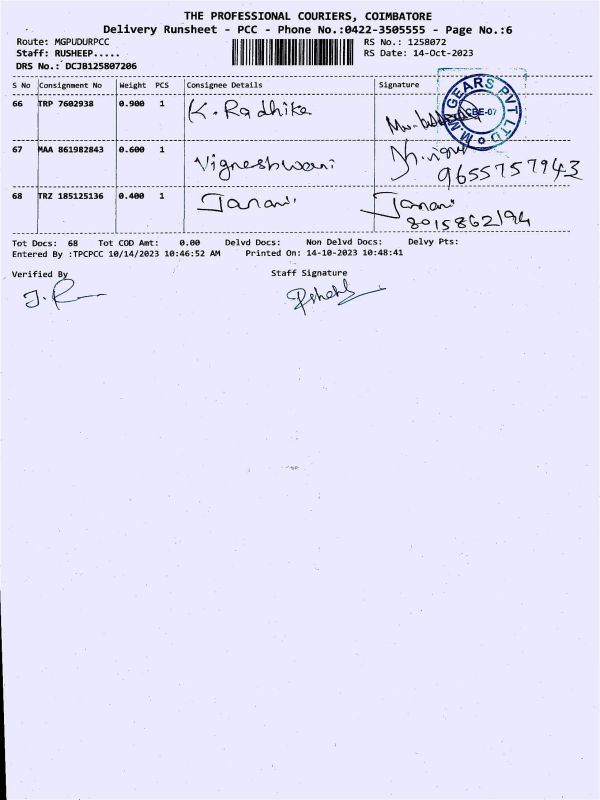 THE PROFESSIONAL COURIERS, COIMBATORE
Delivery Runsheet - PCC - Phone No.:0422-3505555 - Page No.:6
Route: MGPUDURPCC RS No.: 1258072
Staff: RUSHEEP..... RS Date: 14-Oct-2023
DRS No.: DCJB125807206
S No Consignment No Weight PCS Consignee Details Signature
66 TRP 7602938 0.900 1 K. Radhika
M.M. GEARS PVT LTD CBE-07
67 MAA 861982843 0.600 1 Vigneshwari 9655757943
68 TRZ 185125136 0.400 1 Janani Janani
8015862194
Tot Docs: 68 Tot COD Amt: 0.00 Delvd Docs: Non Delvd Docs: Delvy Pts:
Entered By :TPCPCC 10/14/2023 10:46:52 AM Printed On: 14-10-2023 10:48:41
Verified By Staff Signature